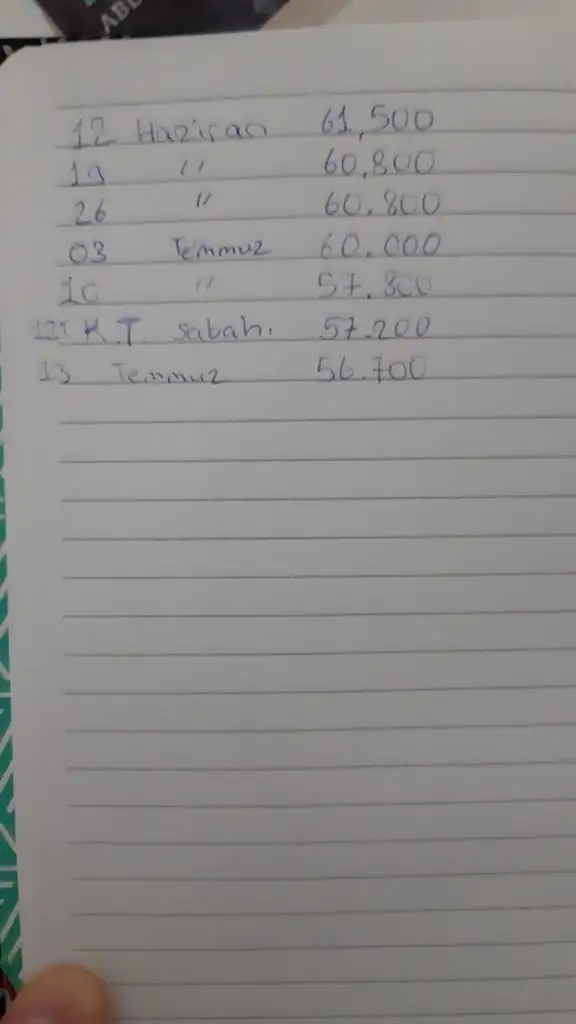 ABL
12 Haziran 61,500
19 " 60.800
26 " 60.800
03 Temmuz 60.000
10 " 57.800
12T K.T. sabah. 57.200
13 Temmuz 56.700